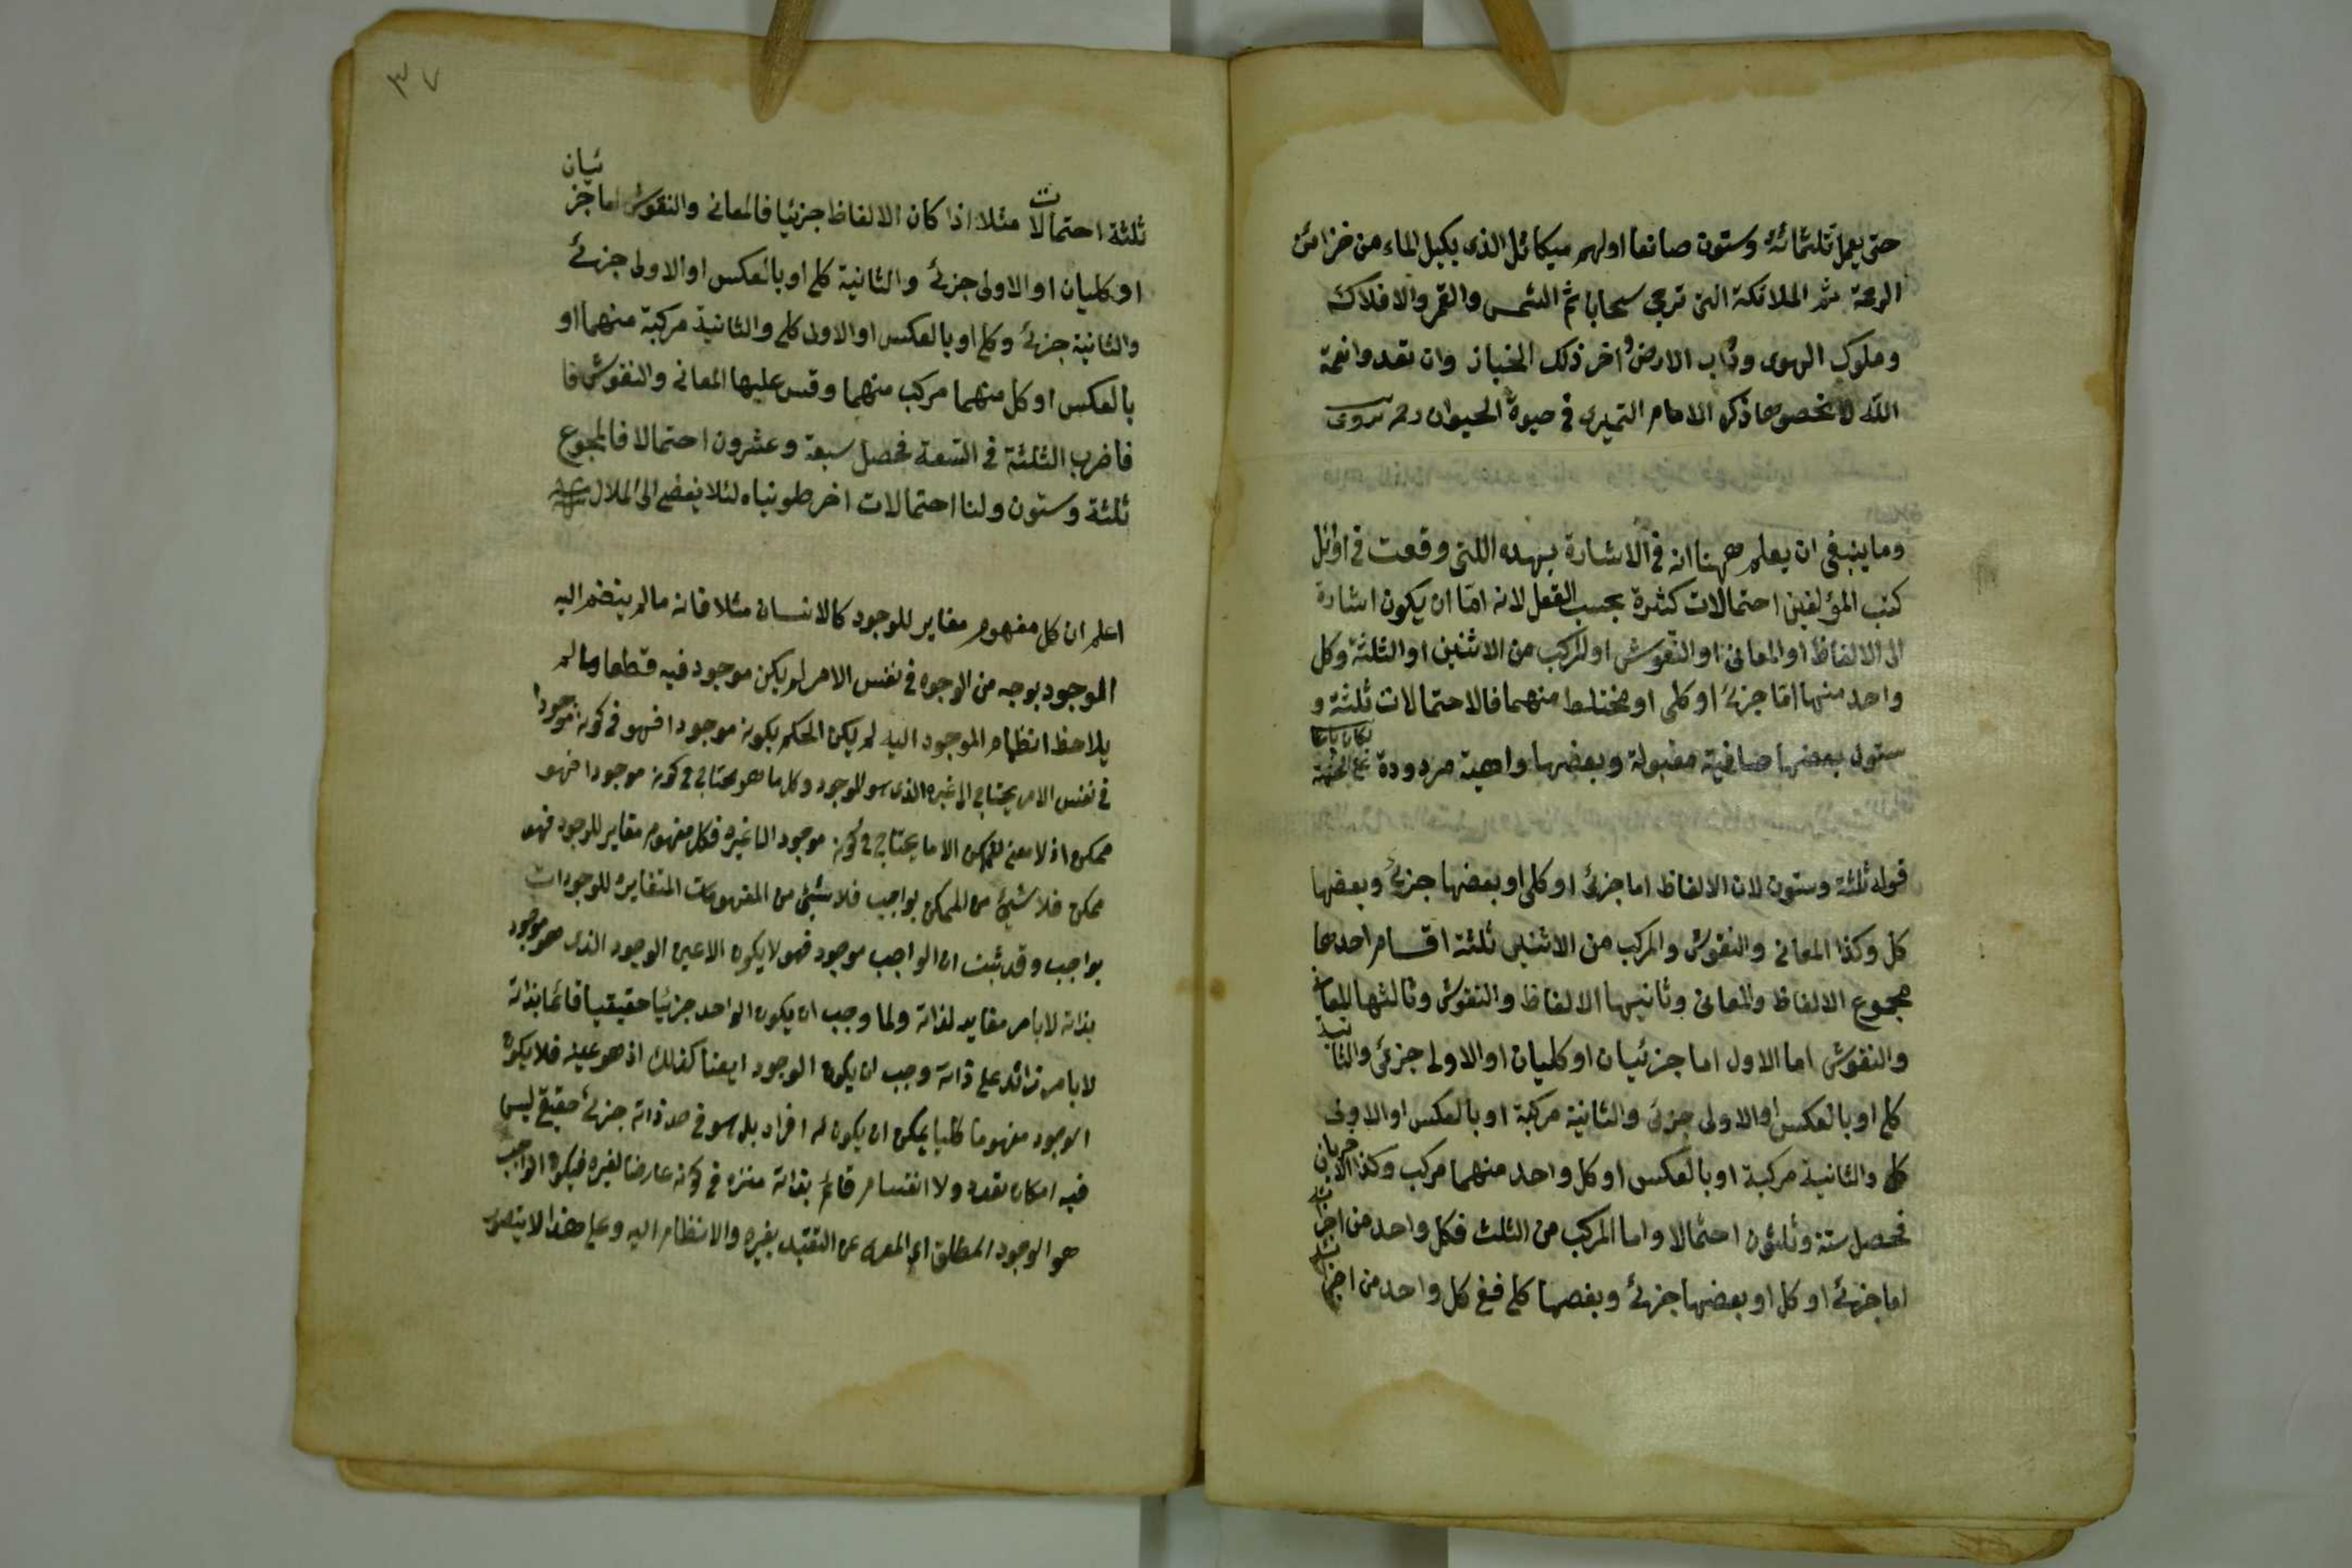 حتى يعمل ثلثمائة وستون صانعا اولهم ميكائل الذى يكيل الماء من خزائن
الرحمة ثم الملائكة التى تزجى سحابا ثم الشمس والقمر والافلاك
وملوك الهوى ودواب الارض واخر ذلك الخباز وان تعدوا نعمة
الله لا تحصوها ذكره الامام الدميرى فى حيوة الحيوان
وما ينبغى ان يعلم ههنا انه فى الاشارة بهذه اللتى وقعت فى اوائل
كتب المؤلفين احتمالات كثيرة بحسب العقل لانه اما ان يكون اشارة
الى الالفاظ او المعانى او النقوش او المركب من الاثنين او الثلثة وكل
واحد منها اما جزئ او كلى او مختلط منهما فالاحتمالات ثلثة و
ستون بعضها صافية مقبولة وبعضها واهية مردودة
قوله ثلثة وستون لان الالفاظ اما جزئ او كلى او بعضها جزئ وبعضها
كل وكذا المعانى والنقوش والمركب من الاثنين ثلثة اقسام احدها
مجموع الالفاظ والمعانى وثانيها الالفاظ والنقوش وثالثها المعانى
والنقوش اما الاول اما جزئيان او كليان او الاولى جزئى والثانية
كلى او بالعكس او الاولى جزئ والثانية مركبة او بالعكس او الاولى
كل والثانية مركبة او بالعكس او كل واحد منهما مركب وكذا الاخريان
فحصل ستة وثلثون احتمالا واما المركب من الثلث فكل واحد من اجزائه
اما جزئ او كل او بعضها جزئ وبعضها كلى ففى كل واحد من اجزائه
٣٧
ثلثة احتمالات مثلا اذا كان الالفاظ جزئيا فالمعانى والنقوش اما جزئيان
او كليان او الاولى جزئ والثانية كلى او بالعكس او الاولى جزئ
والثانية جزئ وكلى او بالعكس او الاولى كلى والثانية مركبة منهما او
بالعكس او كل منهما مركب منهما وقس عليها المعانى والنقوش فا
فاضرب الثلثة فى التسعة فحصل سبعة وعشرون احتمالا فالمجموع
ثلثة وستون ولنا احتمالات اخر طويناه لئلا يفضى الى الملال
اعلم ان كل مفهوم مغاير للوجود كالانسان مثلا فانه مالم ينضم اليه
الموجود بوجه من الوجوه فى نفس الامر لم يكن موجود فيه قطعا ومالم
يلاحظ انظمام الموجود اليه لم يكن الحكم بكونه موجودا فهو فى كونه موجودا
فى نفس الامر يحتاج الى غيره الذى هو الموجود وكل ما هو محتاج فى كونه موجودا فهو
ممكن اذ لا معنى للممكن الا ما يحتاج فى كونه موجود الى غيره فكل مفهوم مغاير للوجود فهو
ممكن فلا شيئ من الممكن بواجب فلا شيئ من المفهومات المتغايره للوجودات
بواجب وقد ثبت ان الواجب موجود فهو لا يكون الا عين الوجود الذى هو موجود
بذاته لا بامر مغاير لذاته ولما وجب ان يكون الواحد جزئيا حقيقيا قائما بذاته
لا بامر زائد على ذاته وجب ان يكون الوجود ايضا كذلك اذ هو عينه فلا يكون
الوجود مفهوما كليا يمكن ان يكون له افراد بل هو فى حد ذاته جزئ حقيقى ليس
فيه امكان تعدد ولا انقسام قائم بذاته منزه فى كونه عارضا لغيره فيكون الواجب
هو الوجود المطلق اى المعرى عن التقيد بغيره والانظمام اليه وعلى هذا لا يتصور